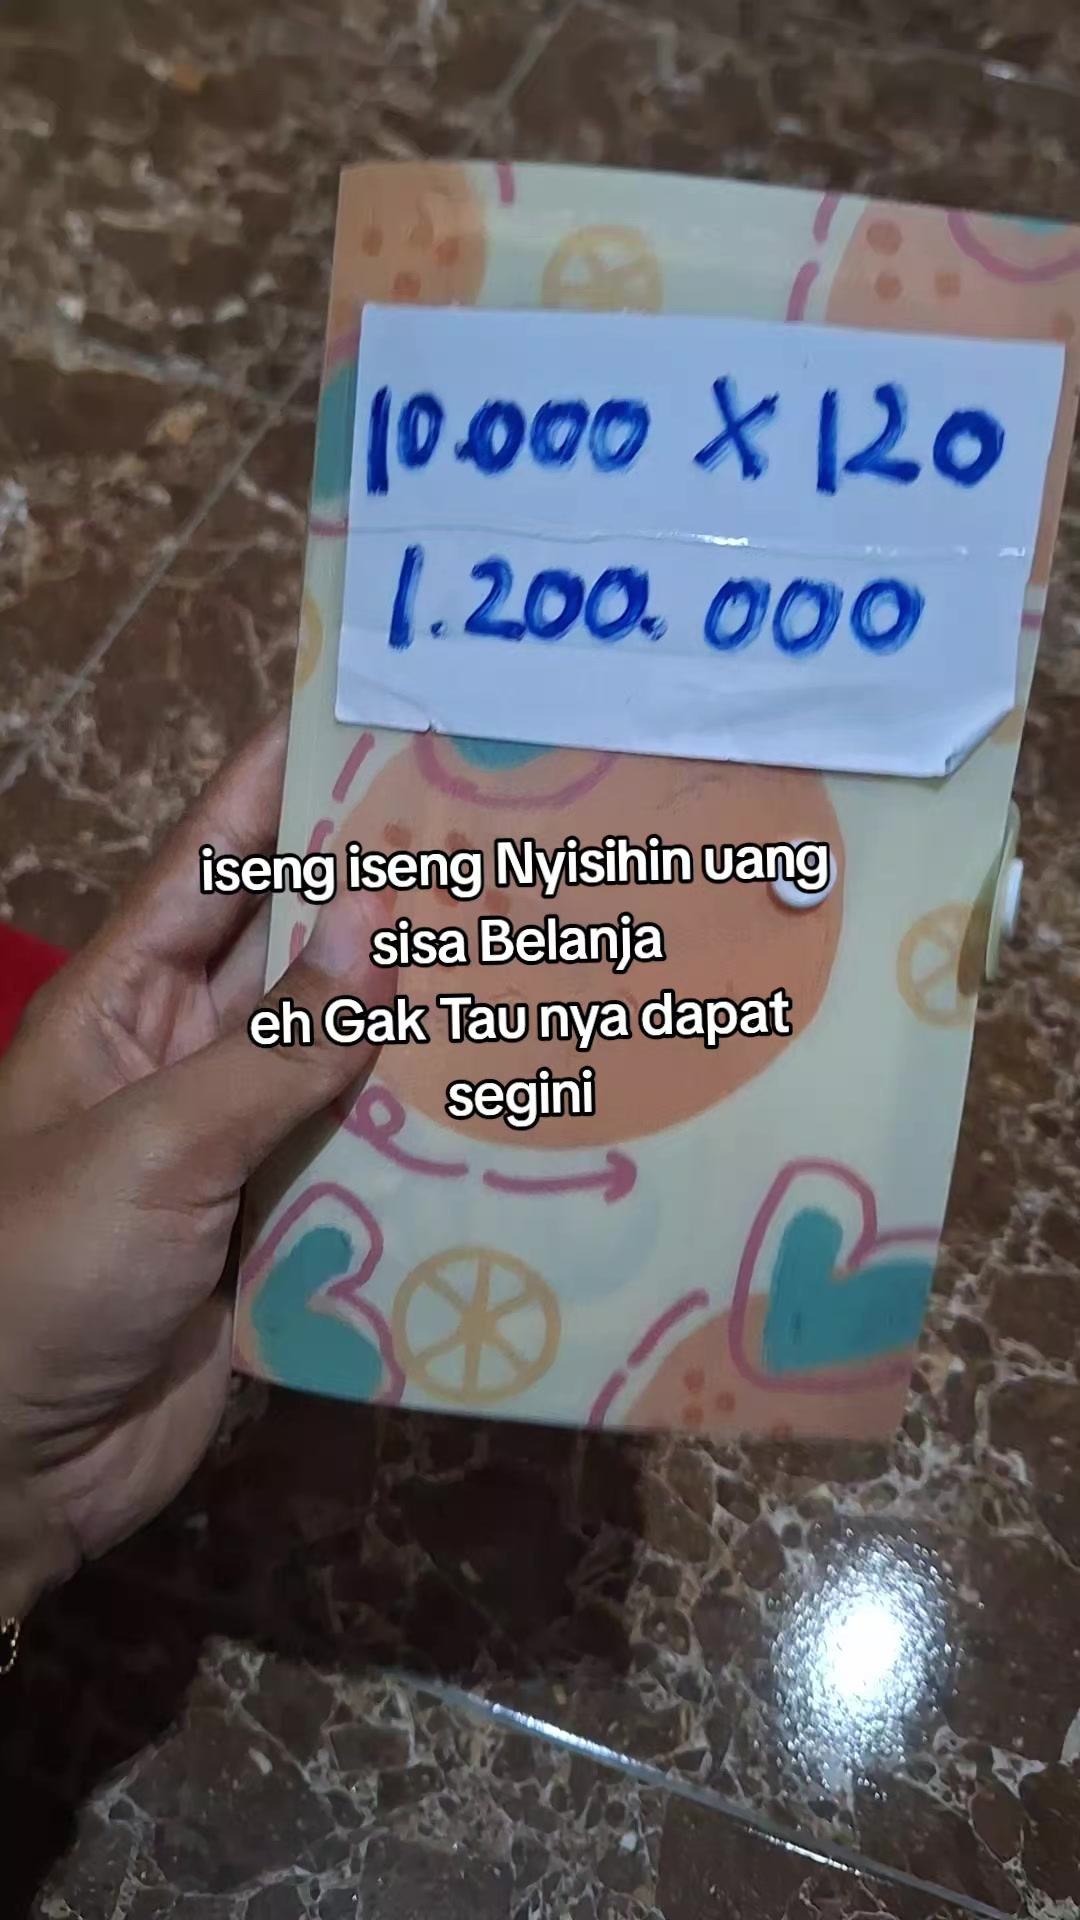 10.000 X 120
1.200.000
iseng iseng Nyisihin uang
sisa Belanja
eh Gak Tau nya dapat
segini